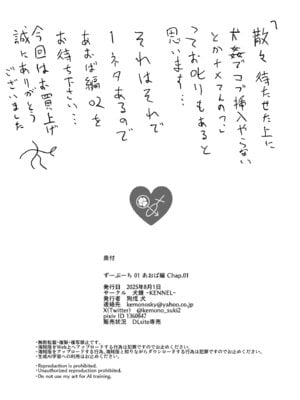 「散々待たせた上に
犬姦でコブ挿入やらない
とかナメてんの?」
ってお叱りもあると
思います…
それはそれで
1ネタあるので
あおば編02を
お待ち下さい…
今回はお買上げ
誠にありがとう
ございました
奥付
ずーぷーち 01 あおば編 Chap.01
発行日 2025年8月1日
サークル 犬鎌 -KENNEL-
発行者 狗戌 犬
連絡先 kemonosky@yahoo.co.jp
X(Twitter) @kemono_suki2
pixiv ID 1360847
販売状況 DLsite専売
・無断転載・複製・複写禁止です。
・海賊版をWeb上へアップロードする行為は犯罪ですのでお止めください。
・海賊版をアップロードする行為、海賊版と知りながらダウンロードする行為は犯罪ですのでお止めください。
・生成AI学習への利用はお止めください。
・Reproduction is prohibited.
・Unauthorized reproduction prohibited.
・Do not use my art for AI training.